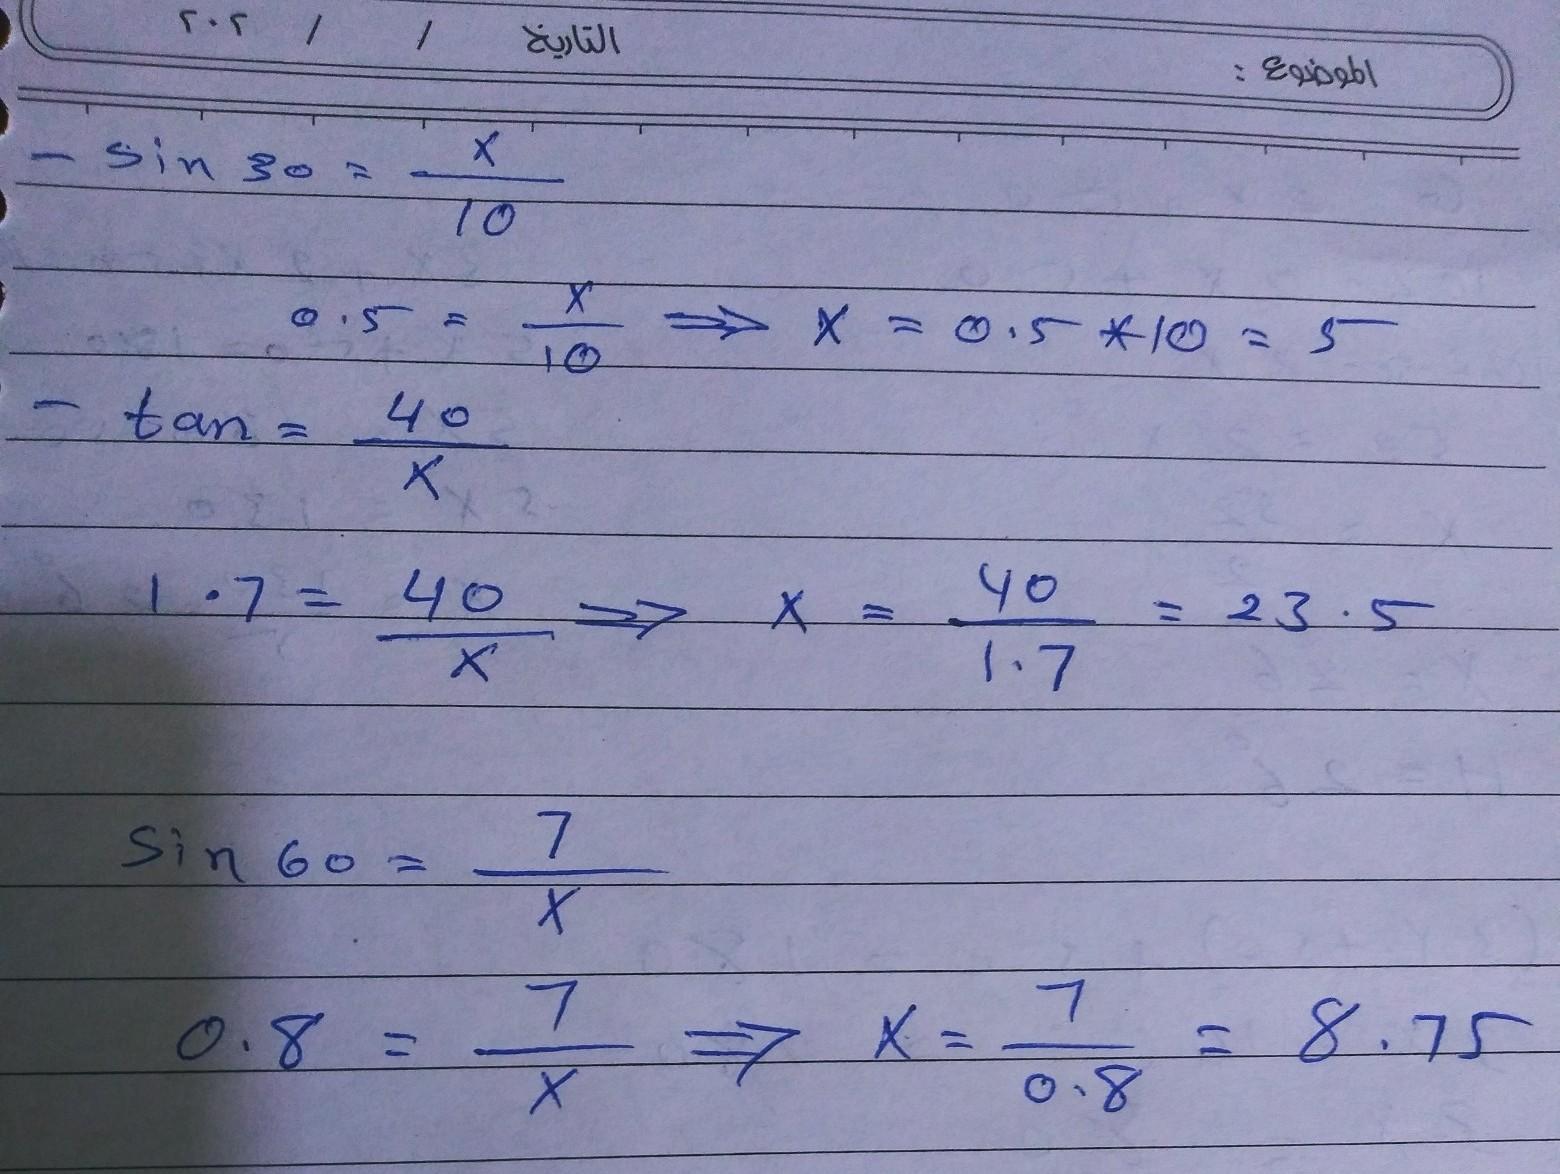 الموضوع : التاريخ / / ٢٠٢
- sin 30 = x/10
0.5 = x/10 ⇒ x = 0.5 * 10 = 5
- tan = 40/x
1.7 = 40/x ⇒ x = 40/1.7 = 23.5
Sin 60 = 7/x
0.8 = 7/x ⇒ x = 7/0.8 = 8.75